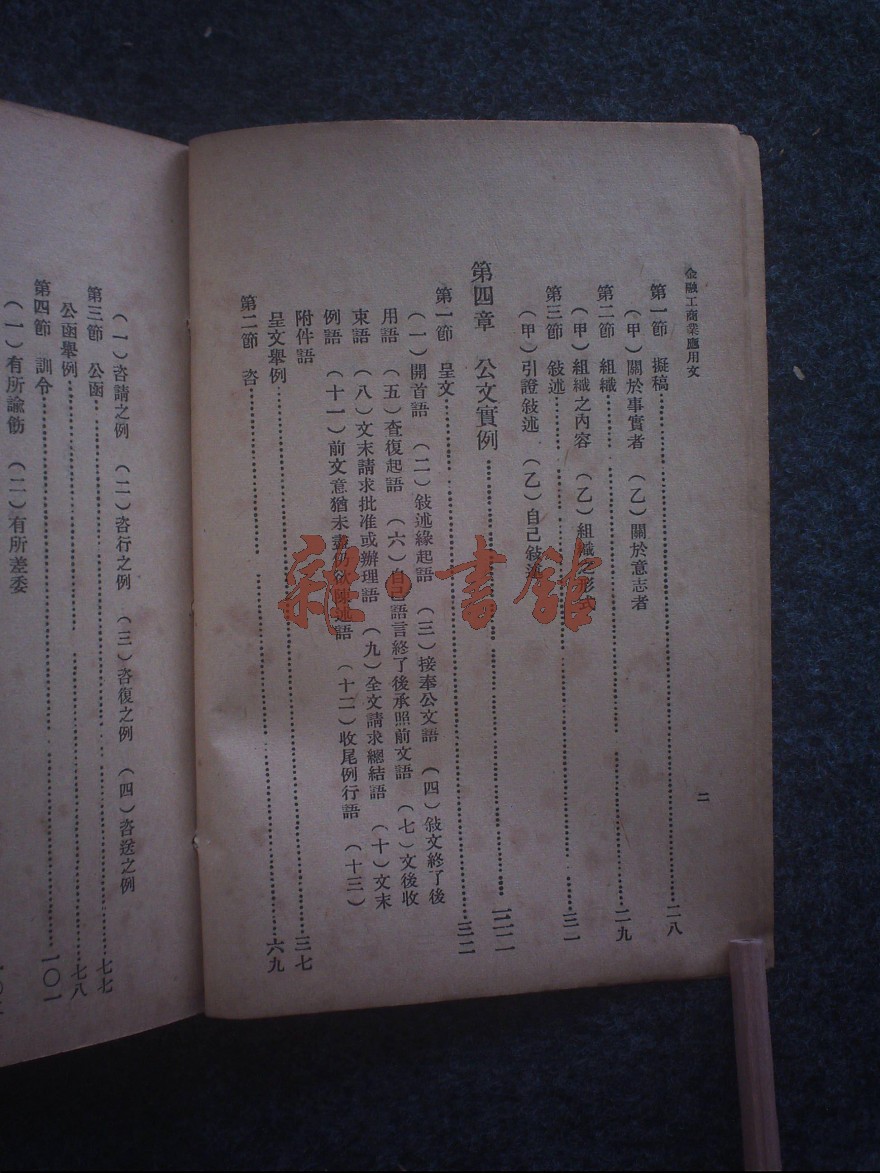 金融工商業應用文
二
第一節 擬稿……二八
（甲）關於事實者 （乙）關於意志者
第二節 組織……二九
（甲）組織之內容 （乙）組織之形式
第三節 敍述……三一
（甲）引證敍述 （乙）自己敍述
第四章 公文實例……三二
第一節 呈文……三二
（一）開首語 （二）敍述緣起語 （三）接奉公文語 （四）敍文終了後
用語 （五）查復起語 （六）自己語言終了後承照前文語 （七）文後收
束語 （八）文末請求批准或辦理語 （九）全文請求總結語 （十）文末
例語 （十一）前文意猶未盡仍欲陳述語 （十二）收尾例行語 （十三）
附件語
呈文舉例……三七
第二節 咨……六九
（一）咨請之例 （二）咨行之例 （三）咨復之例 （四）咨送之例
第三節 公函……七七
公函舉例……七八
第四節 訓令……一〇一
（一）有所諭飭 （二）有所差委
雜·書館